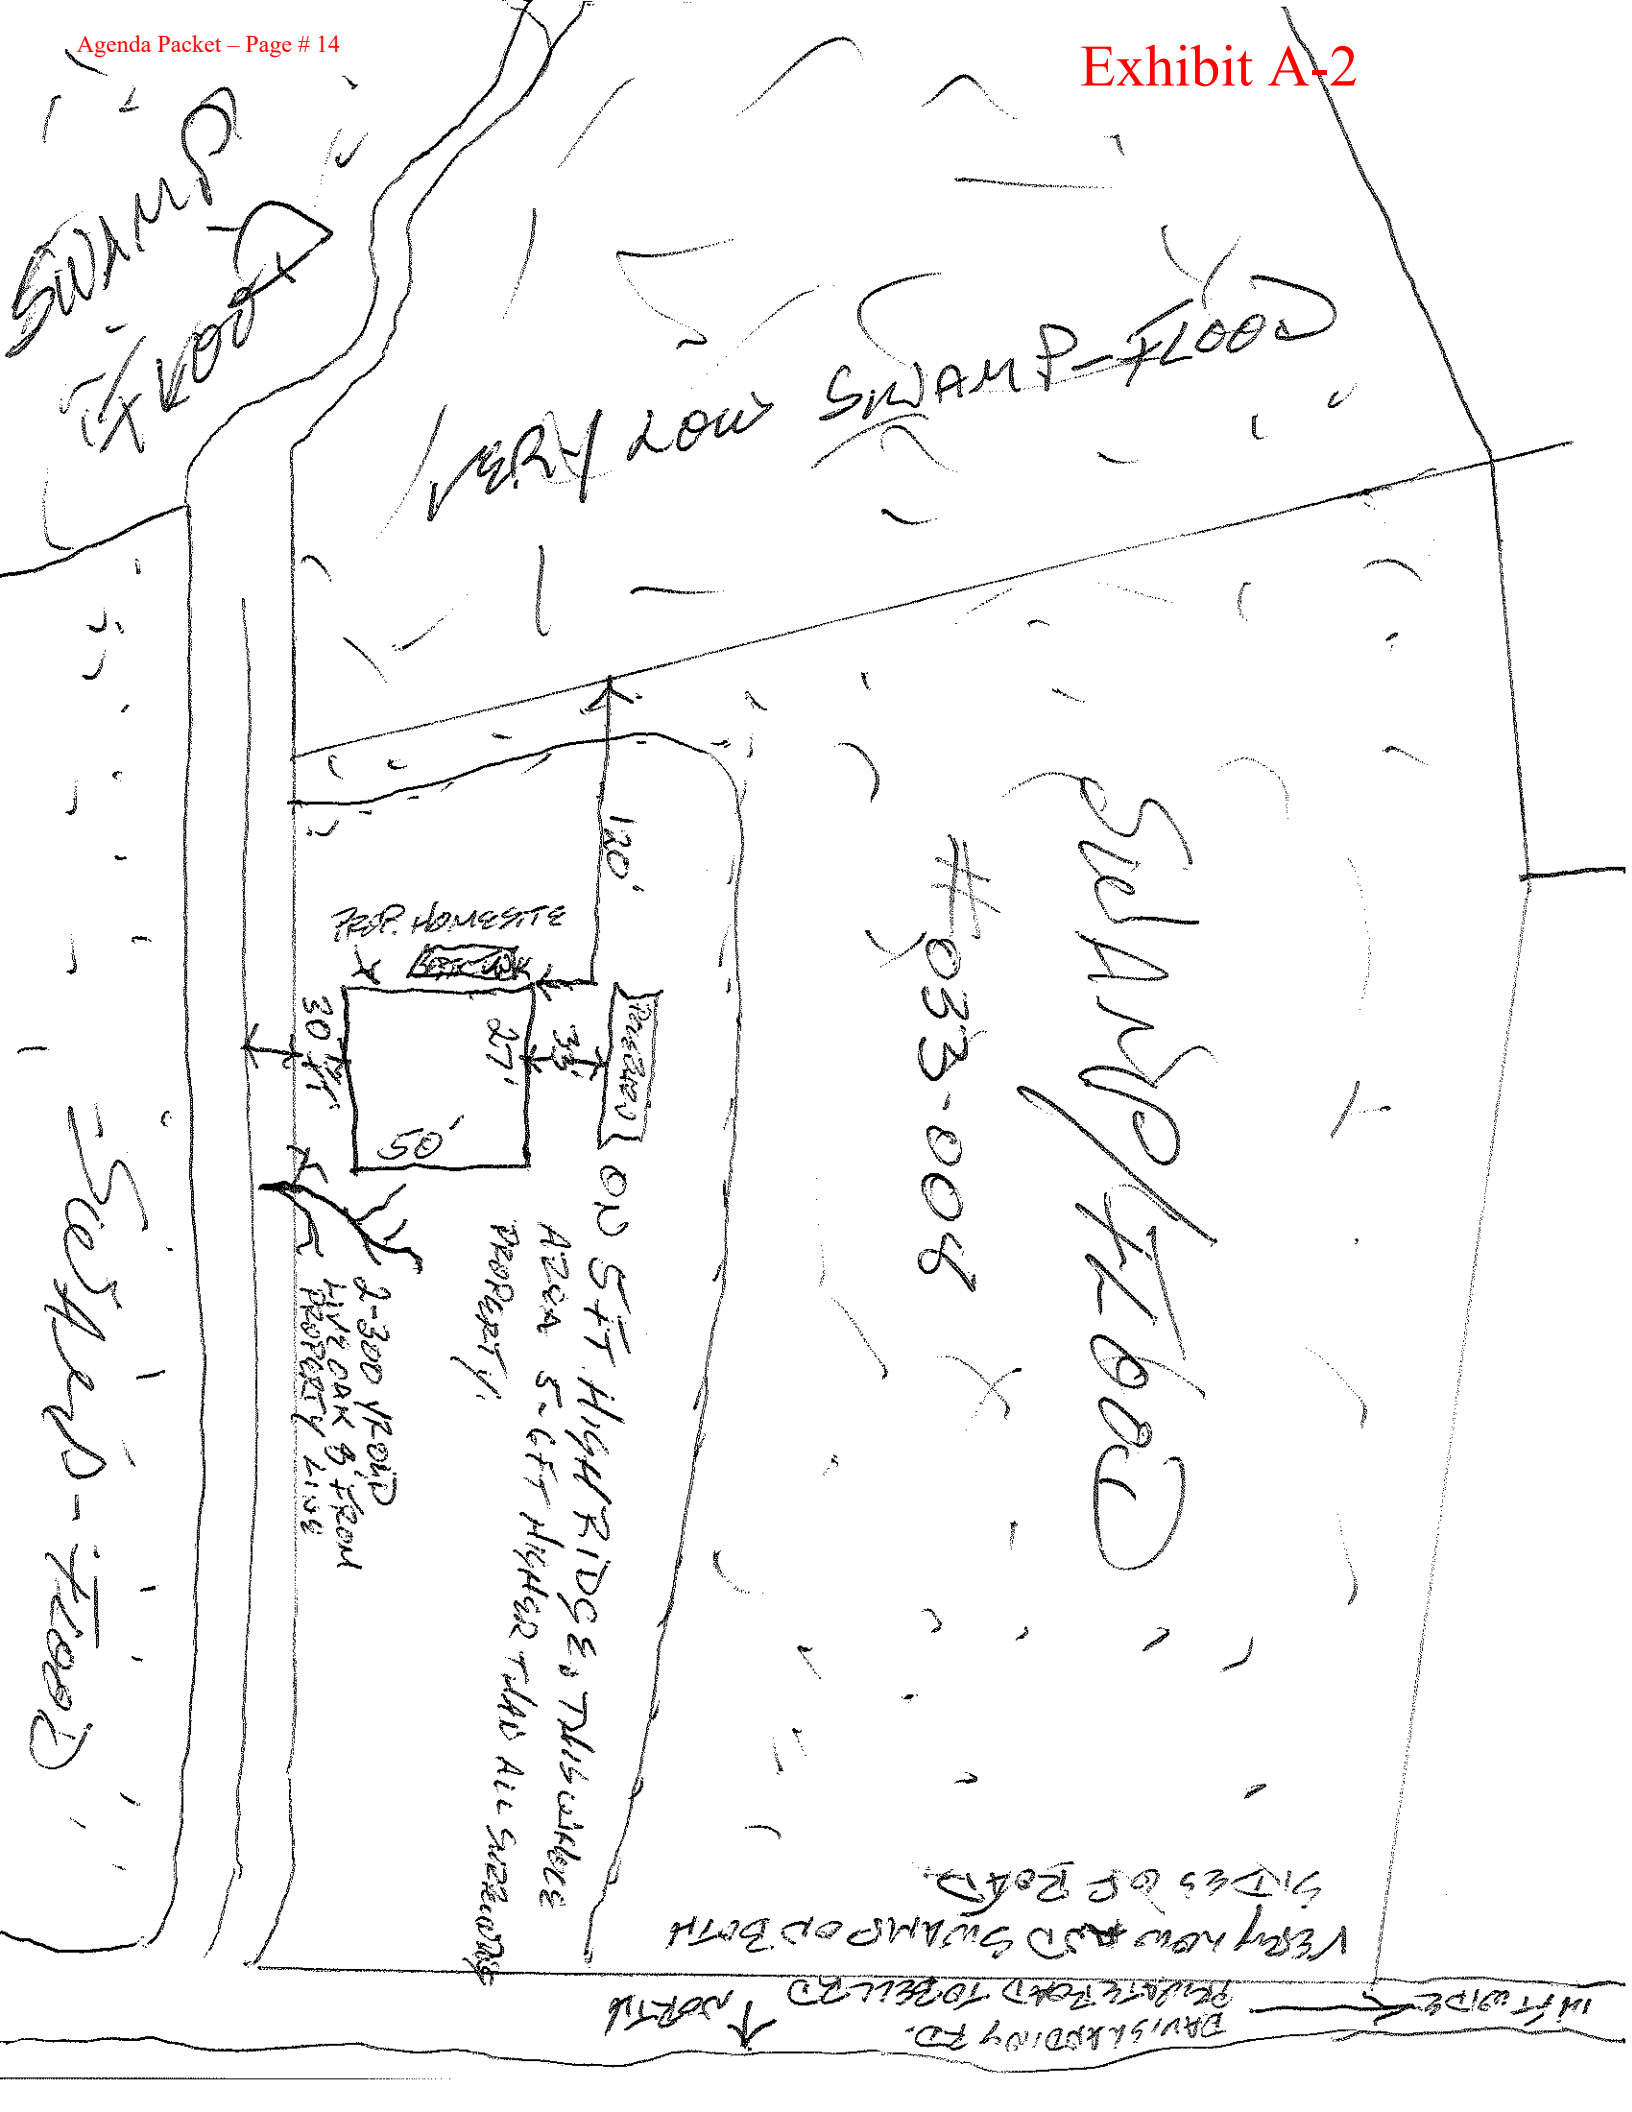 Agenda Packet – Page # 14
Exhibit A-2
SWAMP
FLOOD
VERY LOW SWAMP-FLOOD
120'
PROP. HOMESITE
30 FT.
27'
33'
50'
ON 5 FT. HIGH RIDGE. THIS WHOLE
AREA 5-6 FT HIGHER THAN ALL SURROUNDING
PROPERTY.
2-300 YR OLD
LIVE OAK 8' FROM
PROPERTY LINE
SWAMP-FLOOD
SWAMP/FLOOD
#033-006
VERY LOW AND SWAMP ON BOTH
SIDES OF ROAD.
DAVIS LANDING RD.
PRIVATE ROAD TO BELL RD
FT WIDE
NORTH